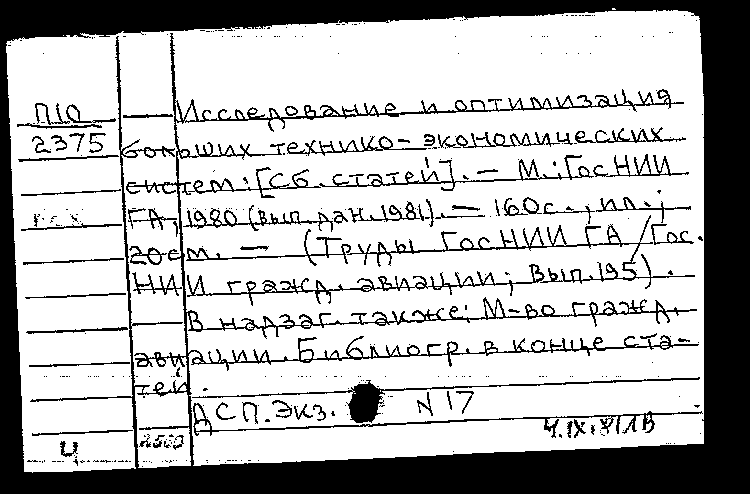 П10
2375
Исследование и оптимизация
больших технико-экономических
систем: [Сб. статей]. — М.: ГосНИИ
ГА, 1980 (вып. дан. 1981). — 160с., ил.;
20см. — (Труды ГосНИИ ГА / Гос.
НИИ гражд. авиации; Вып. 195).
В надзаг. также: М-во гражд.
авиации. Библиогр. в конце ста-
тей.
ДСП. Экз. N 17
Ч